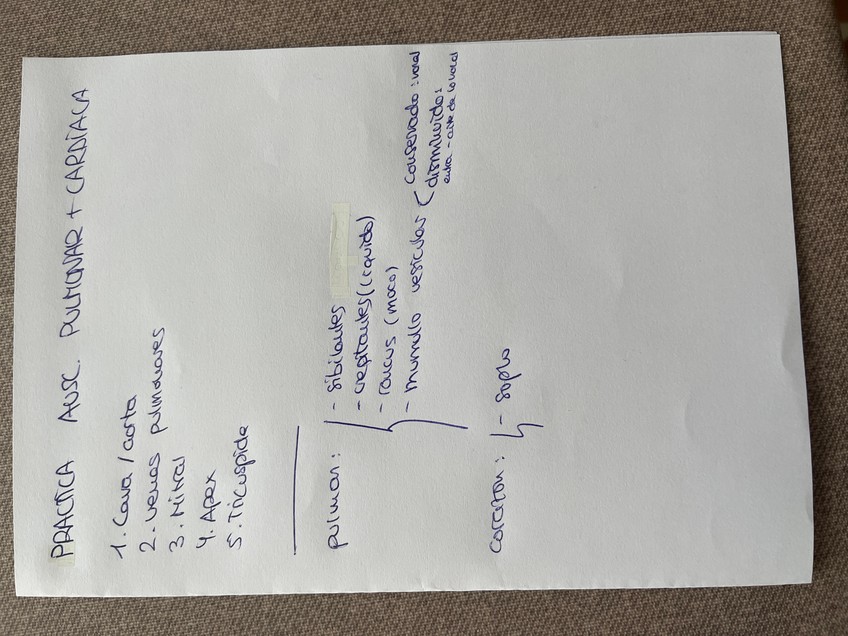 PRÁCTICA AUSC. PULMONAR + CARDÍACA
1. Cava / aorta
2. venas pulmonares
3. Mitral
4. Apex
5. Tricuspide
pulmon:
- sibilantes
- crepitantes (liquido)
- roncus (moco)
- murmullo vesicular
conservado: 
disminuido:
corazon:
- soplo